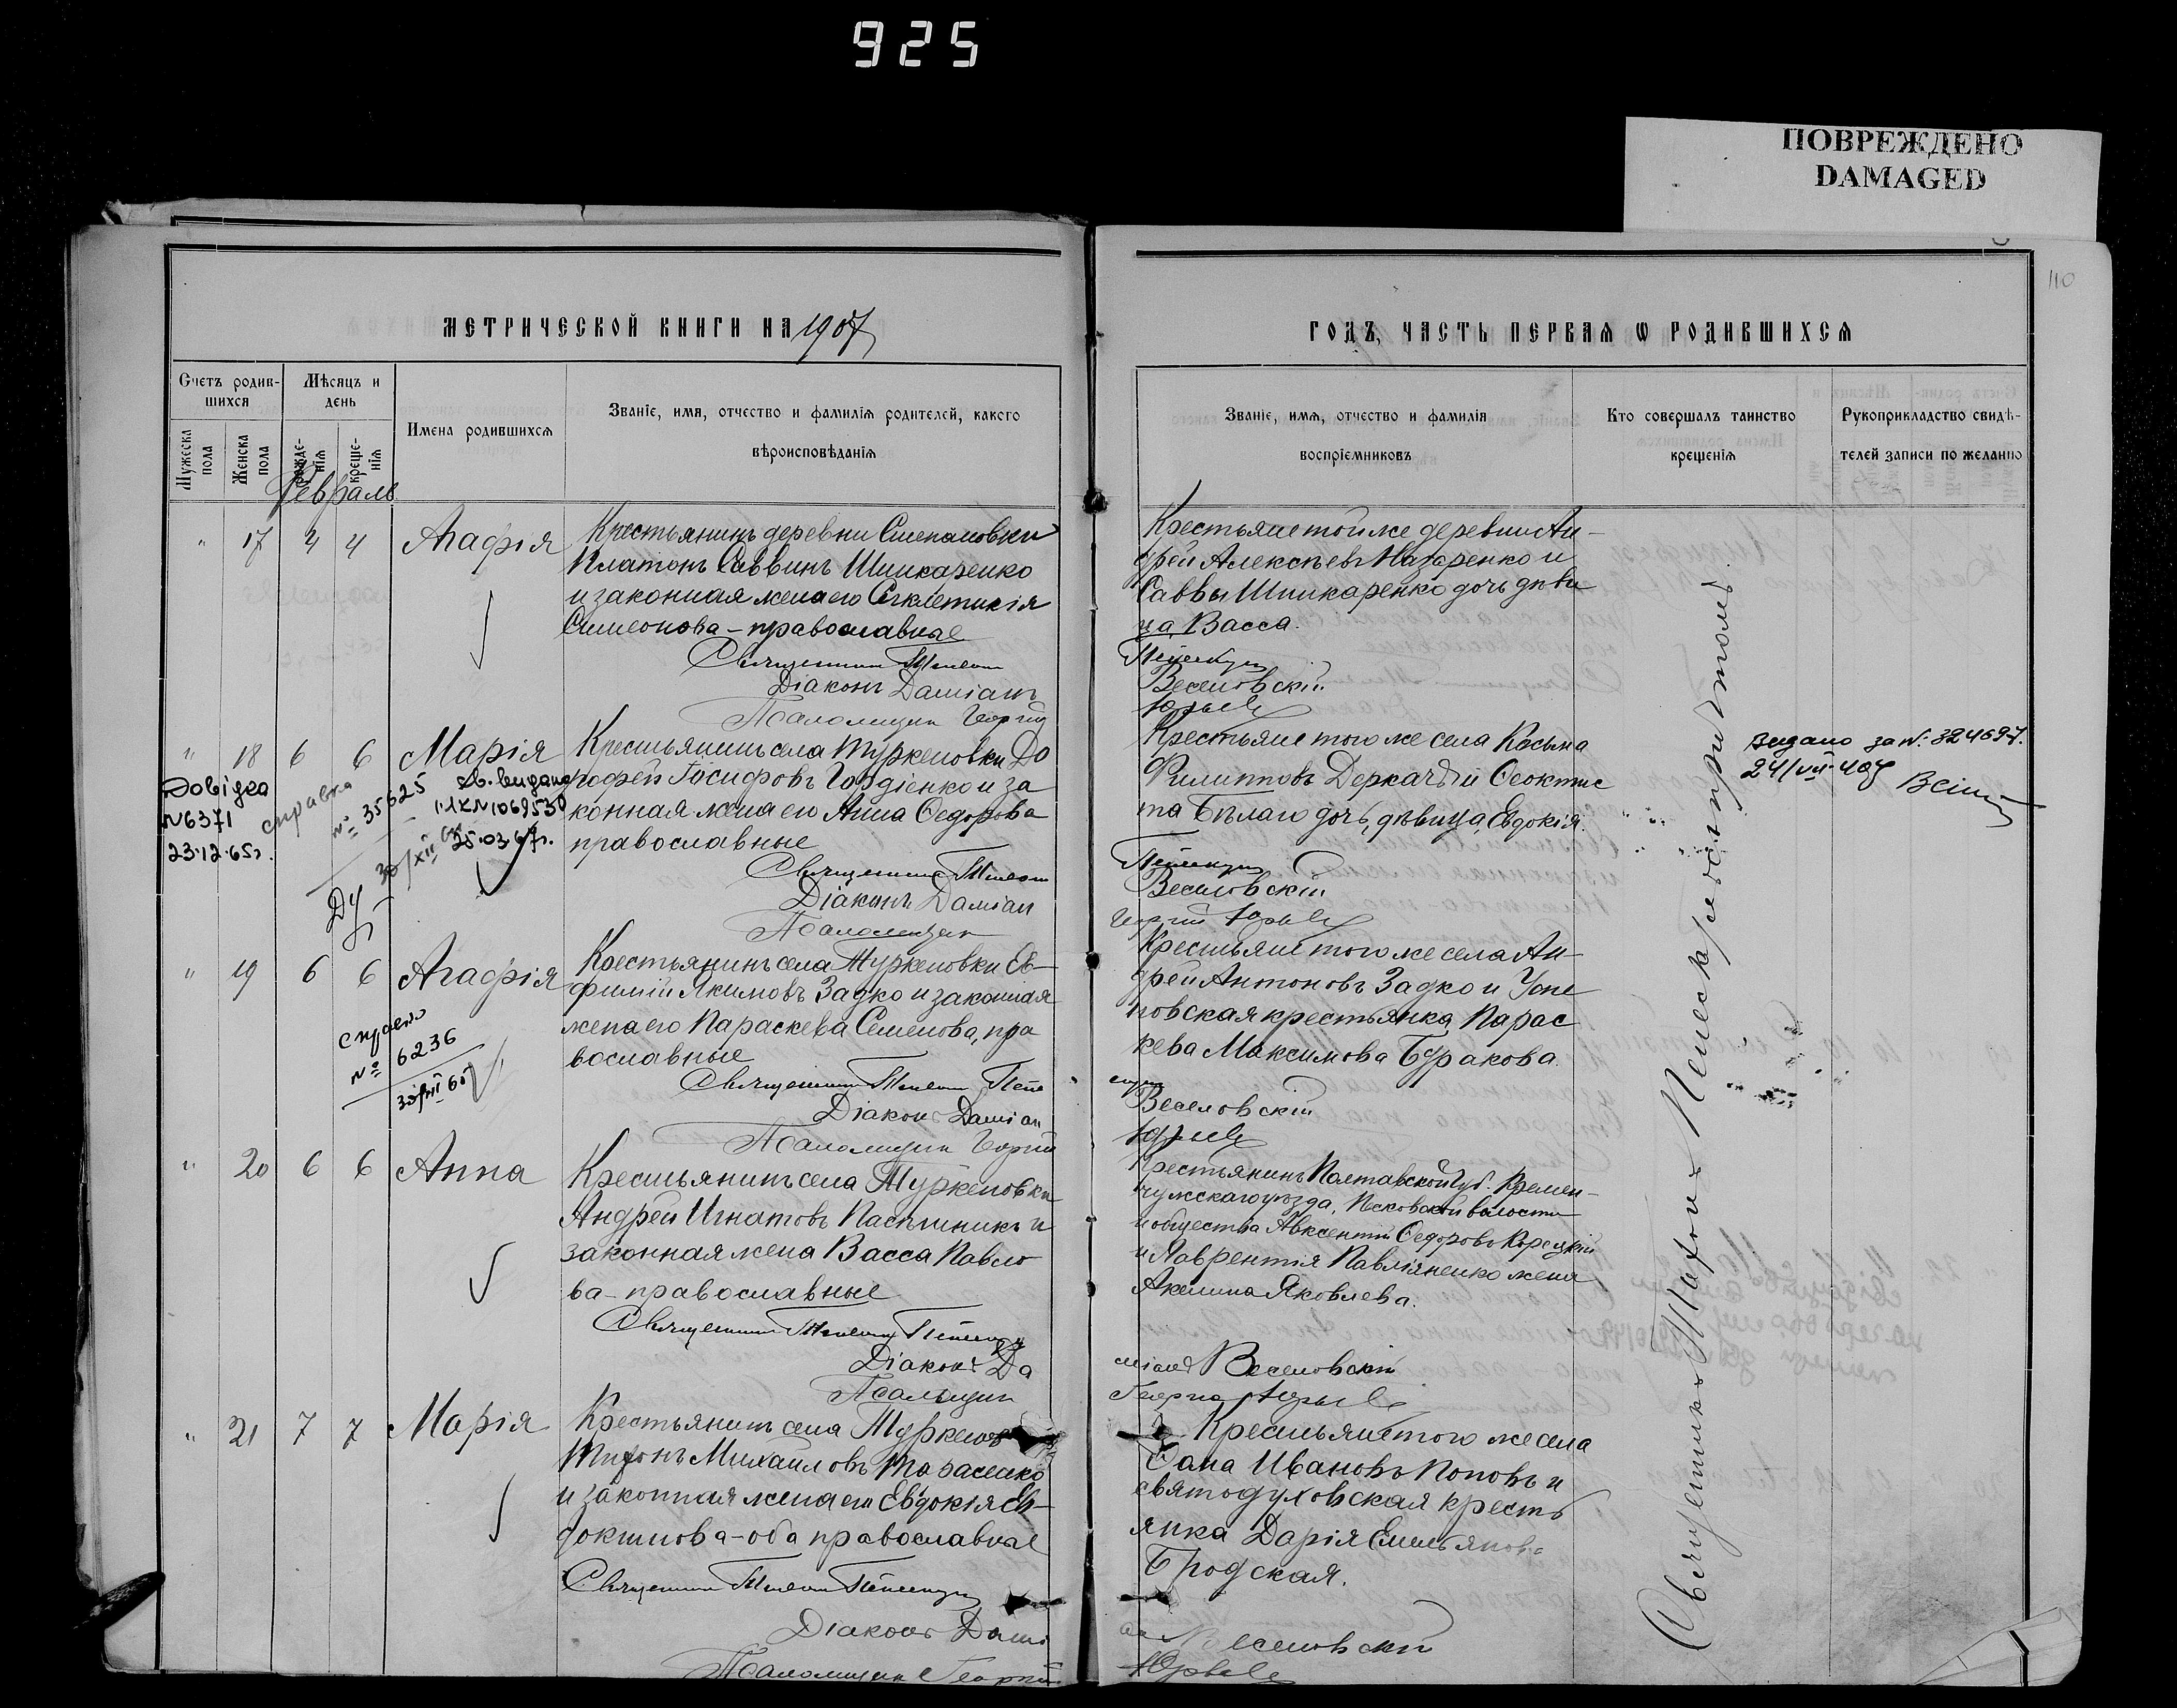 925
ПОВРЕЖДЕНО
DAMAGED
110
МЕТРИЧЕСКОЙ КНИГИ НА 1907
ГОДЪ, ЧАСТЬ ПЕРВАЯ Ѡ РОДИВШИХСЯ
Счетъ родив-
шихся
Мужеска
пола
Женска
пола
Мѣсяцъ и
день
рожде-
нія
креще-
нія
Имена родившихся
Званіе, имя, отчество и фамилія родителей, какого
вѣроисповѣданія
Званіе, имя, отчество и фамилія
воспріемниковъ
Кто совершалъ таинство
крещенія
Рукоприкладство свидѣ-
телей записи по желанію
Февраль
" 17 4 4 Агафія
Крестьянинъ деревни Степановки
Платонъ Саввинъ Шинкаренко
и законная жена его Сѵнклетикія
Симеонова - православные
Священникъ
Діаконъ Даміанъ
Псаломщикъ Георгій
Крестьяне той же деревни Ан-
дрей Алексѣевъ Назаренко и
Саввы Шинкаренко дочь дѣви
ца Васса.
Веселовскій
Юрьевъ
" 18 6 6 Марія
Довідка
N6371
23.12.65г.
справка
№ 35625
30/XII 65
Св. выдано
1069530
25.03.67г.
Крестьянинъ села Туркеновки До
рофей Іосифовъ Гордіенко и за
конная жена его Анна Ѳедорова
православные
Священникъ
Діаконъ Даміан
Псаломщик
Крестьяне того же села Косьма
Филипповъ Деркачъ и Ѳеоктис
та Бѣлаго дочь, дѣвица, Евдокія.
Веселовскій
Георгій Юрьевъ
Видано за N: 324697.
24/VII
" 19 6 6 Агафія
№ 6236
30/XII 65
Крестьянинъ села Туркеновки Ев-
фимій Якимовъ Задко и законная
жена его Параскева Семенова, пра
вославные
Священникъ
Діаконъ Даміан
Псаломщик Георгій
Крестьяне того же села Ан-
дрей Антоновъ Задко и Успе
новская крестьянка Парас
кева Максимова Буракова.
Веселовскій
Юрьевъ
" 20 6 6 Анна
Крестьянинъ села Туркеновки
Андрей Игнатовъ Пасѣчникъ и
законная жена Васса Павло
ва - православные
Священникъ
Діаконъ Да
Псаломщик
Крестьянинъ Полтавской губ. Кремен-
чужскаго уѣзда, Песковской волости
и общества Авксентій Ѳедоровъ Корецкій
и Лаврентія Павліяненко жена
Акилина Яковлева.
міанъ Веселовскій
Георгій Юрьевъ
" 21 7 7 Марія
Крестьянинъ села Туркенов
Тихонъ Михаиловъ Тарасенко
и законная жена его Евдокія Ев-
докимова - оба православные
Священникъ
Діаконъ Дамі
Псаломщик Георгій
Крестьяне того же села
Фама Ивановъ Поповъ и
святодуховская кресть
янка Дарія Емельянова
Бродская.
ан Веселовскій
Юрьевъ
Священникъ съ причтомъ